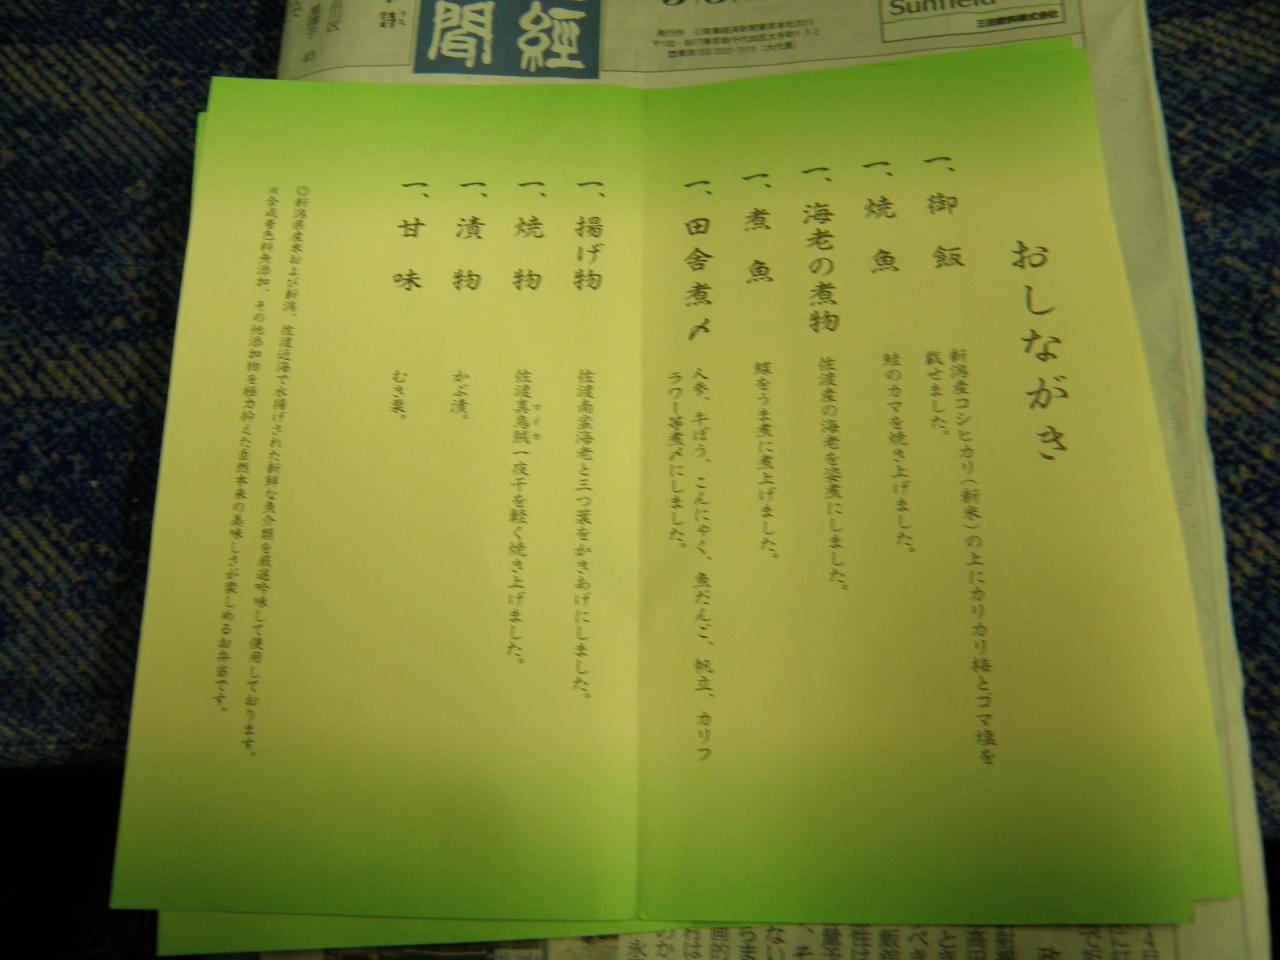 おしながき
一、御飯
新潟産コシヒカリ(新米)の上にカリカリ梅とゴマ塩を
載せました。
一、焼魚
鮭のカマを焼き上げました。
一、海老の煮物
佐渡産の海老を姿煮にしました。
一、煮魚
鰈をうま煮に煮上げました。
一、田舎煮〆
人参、牛ぼう、こんにゃく、魚だんご、帆立、カリフ
ラワー等煮〆にしました。
一、揚げ物
佐渡南蛮海老と三つ葉をかきあげにしました。
一、焼物
佐渡真烏賊一夜干を軽く焼き上げました。
マイカ
一、漬物
かぶ漬。
一、甘味
むき栗。
◎新潟県産米および新潟、佐渡近海で水揚げされた新鮮な魚介類を厳選吟味して使用しております。
※合成着色料無添加、その他添加物を極力抑えた自然本来の美味しさが楽しめるお弁当です。
經
聞
詩
Sunfield